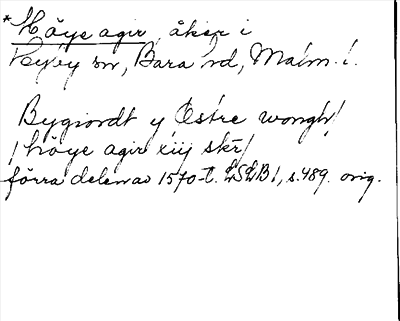 *Höye agir, åker i
Hyby sn, Bara hd, Malm. l.
Bygiordt y Östre wongh/
/höye agir xiij skr/
förra delen av 1570-t. LSLB 1, s. 489. orig.